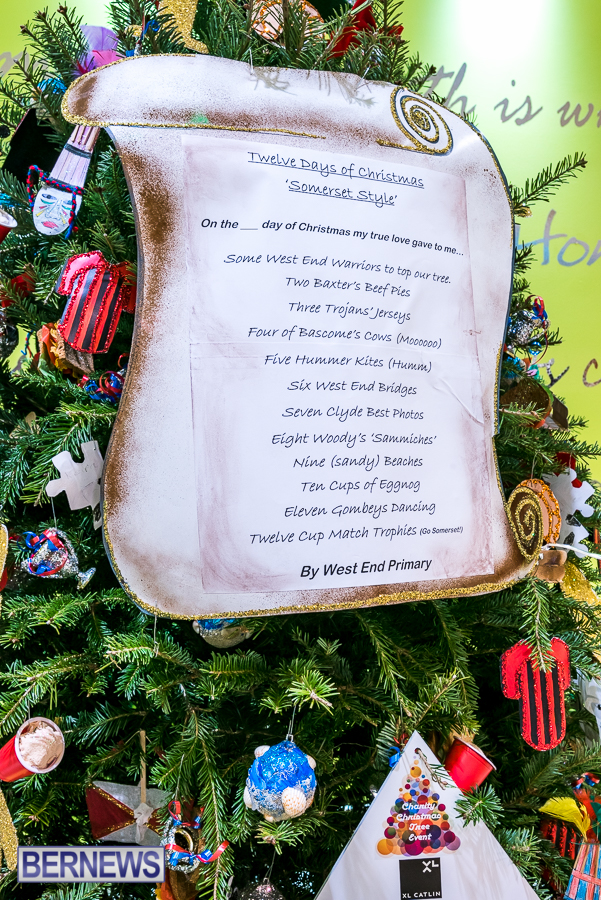 th is w
Hon
Twelve Days of Christmas
'Somerset Style'
On the ___ day of Christmas my true love gave to me...
Some West End Warriors to top our tree.
Two Baxter's Beef Pies
Three Trojans' Jerseys
Four of Bascome's Cows (Moooooo)
Five Hummer Kites (Humm)
Six West End Bridges
Seven Clyde Best Photos
Eight Woody's 'Sammiches'
Nine (sandy) Beaches
Ten Cups of Eggnog
Eleven Gombeys Dancing
Twelve Cup Match Trophies (Go Somerset!)
By West End Primary
Charity
Christmas
Tree
Event
XL
XL CATLIN
BERNEWS